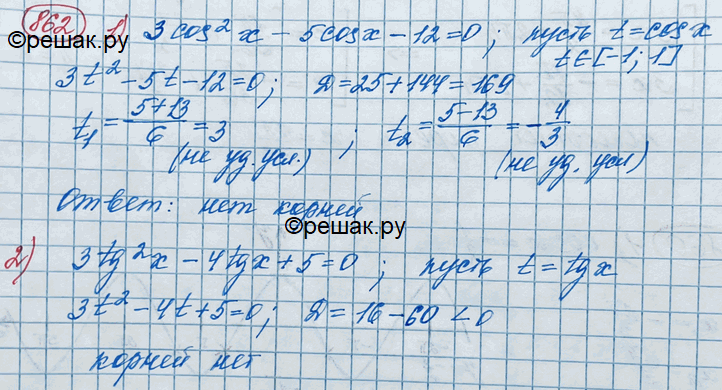 862 1) 3 cos² x − 5 cos x − 12 = 0 ; пусть t = cos x
©решак.ру t ∈ [−1; 1]
3t² − 5t − 12 = 0 ; Д = 25 + 144 = 169
t₁ = (5+13)/6 = 3 ; t₂ = (5−13)/6 = −4/3
(не уд. усл.) (не уд. усл)
Ответ: нет корней
©решак.ру
2) 3 tg² x − 4 tg x + 5 = 0 ; пусть t = tg x
3t² − 4t + 5 = 0 ; Д = 16 − 60 < 0
корней нет